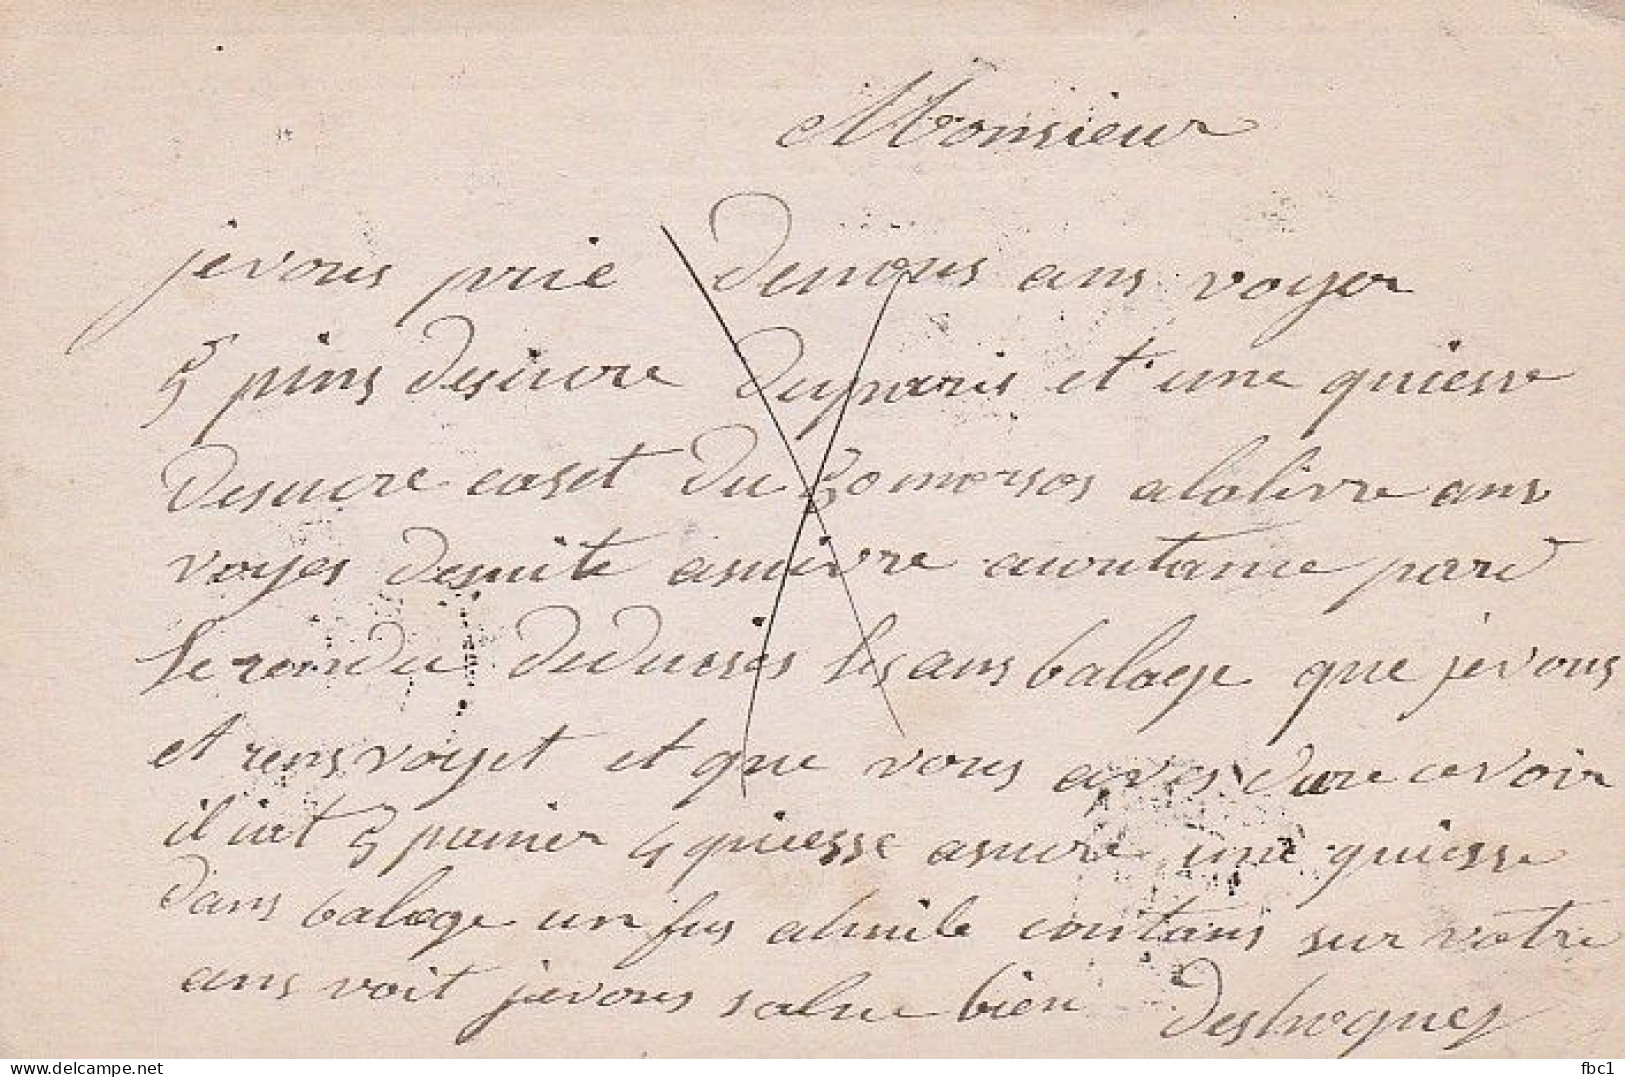 Monsieur
jevous prie denous ans voyer
5 pins desucre duparis et une quiesse
desucre caset du 30 morsos alalivre ans
voyes desuite asuivre acontance pare
le rendu dedusses les ans balage que jevous
et rensvoyet et que vous aves dure cevoir
il iat 5 panier 4 quiesse asucre une quiesse
dans balage un fus alhuile contans sur votre
ans voit jevous salue bien Deshogues
delcampe.net
fbc1